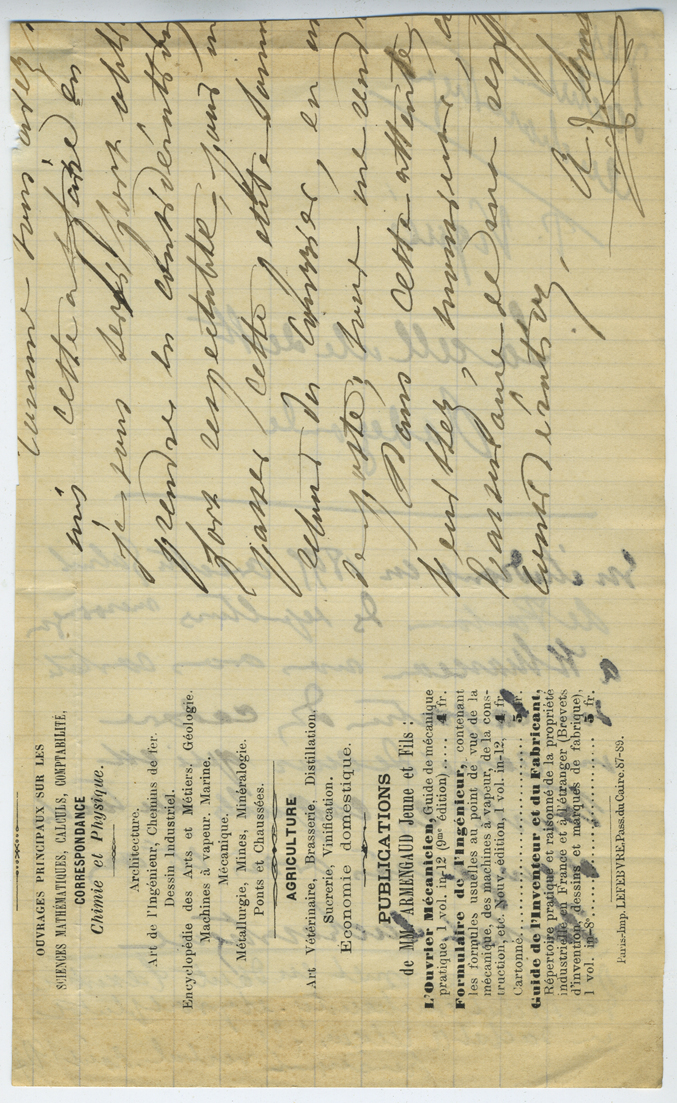 OUVRAGES PRINCIPAUX SUR LES
SCIENCES MATHÉMATIQUES, CALCULS, COMPTABILITÉ,
CORRESPONDANCE
Chimie et Physique.
Architecture.
Art de l'Ingénieur, Chemins de fer.
Dessin Industriel.
Encyclopédie des Arts et Métiers. Géologie.
Machines à vapeur. Marine.
Mécanique.
Métallurgie, Mines, Minéralogie.
Ponts et Chaussées.
AGRICULTURE
Art Vétérinaire, Brasserie, Distillation,
Sucrerie, Vinification.
Économie domestique.
PUBLICATIONS
de MM. ARMENGAUD Jeune et Fils :
L'Ouvrier Mécanicien, Guide de mécanique
pratique, 1 vol. in-12 (9me édition)..... 4 fr.
Formulaire de l'Ingénieur, contenant
les formules usuelles au point de vue de la
mécanique, des machines à vapeur, de la cons-
truction, etc. Nouv. édition, 1 vol. in-12, 4 fr.
Cartonné.......................... 5 fr.
Guide de l'Inventeur et du Fabricant,
Répertoire pratique et raisonné de la propriété
industrielle en France et à l'étranger (Brevets
d'invention, dessins et marques de fabrique),
1 vol. in-8°.................... 5 fr.
Paris-Imp. LEFEBVRE, Pass. du Caire. 87-89.
comme vous
mis cette affaire en
je vous serai fort
prendre en considération
fort respectable, pour
passer cette petite
du courrier, en un
de poste, pour une
Dans cette attente
veuillez, monsieur,
l'assurance de ma
considération,